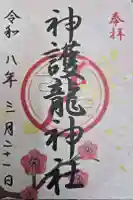 奉拝
神護龍神社
令和八年三月二十一日